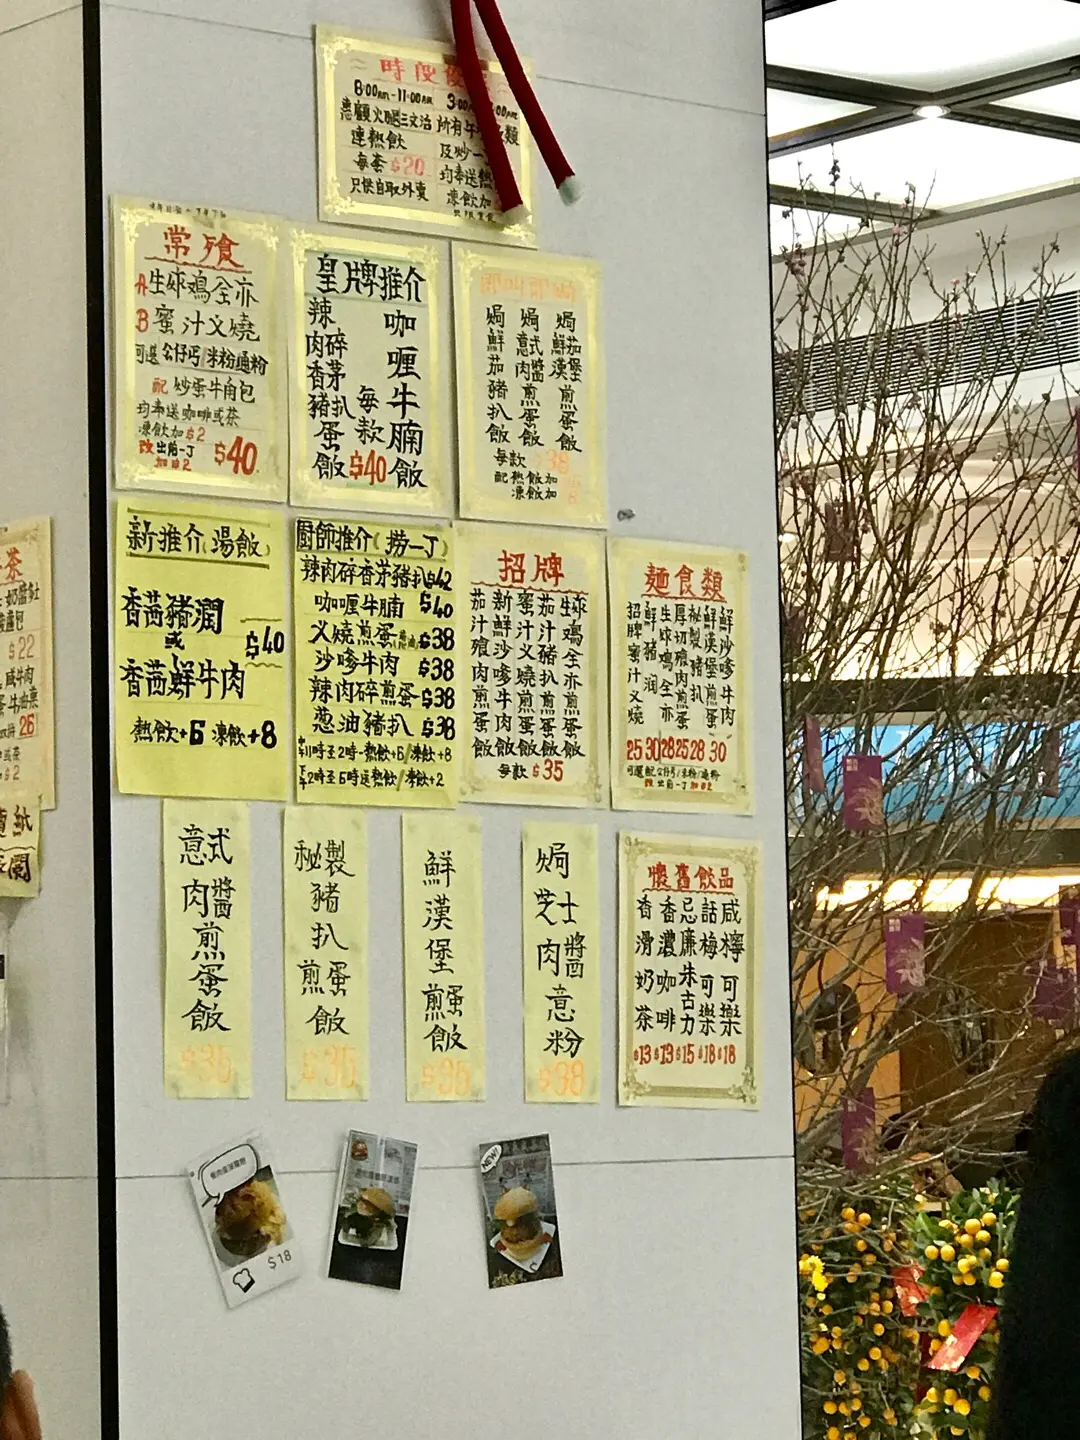 時段優
8:00AM-11:00AM
惠顧火腿三文治
連熱飲
每套$20
只供自取外賣
3:00
所有午
類
及炒一
均奉送熱
凍飲加
常飧
A生炸鷄全亦
B蜜汁义燒
可選公仔丐/米粉通粉
配炒蛋牛角包
均奉送咖啡或茶
凍飲加$2
改出前一丁
加$2
$40
皇牌推介
咖喱牛腩飯
辣肉碎香茅豬扒蛋飯
每款$40
焗鮮茄豬扒飯
焗意式肉醬煎蛋飯
焗鮮茄漢堡煎蛋飯
每款38
配熱飲加
凍飲加8
新推介(湯飯)
香茜豬潤
或
$40
香茜鮮牛肉
熱飲+6 凍飲+8
廚師推介(撈一丁)
辣肉碎香茅豬扒$42
咖喱牛腩 $40
义燒煎蛋 $38
沙嗲牛肉 $38
辣肉碎煎蛋$38
葱油豬扒 $38
11時至2時-熱飲+6/凍飲+8
2時至6時送熱飲/凍飲+2
招牌
生炸鷄全亦煎蛋飯
茄汁豬扒煎蛋飯
蜜汁义燒煎蛋飯
新鮮沙嗲牛肉飯
茄汁飧肉煎蛋飯
每款$35
麵食類
鮮沙嗲牛肉 30
鮮漢堡煎蛋 28
秘製豬扒 25
厚切飧肉煎蛋 28
生炸鷄全亦
鮮豬润 30
招牌蜜汁义燒 25
可選配公仔丐/米粉/通粉
改出前一丁加$2
意式肉醬煎蛋飯
$35
秘製豬扒煎蛋飯
$35
鮮漢堡煎蛋飯
$35
焗芝士肉醬意粉
$38
懷舊飲品
咸檸可樂 $18
話梅可樂 $18
忌廉朱古力 $15
香濃咖啡 $13
香滑奶茶 $13
茶
$22
咸牛肉
26
$2
$18
NEW!